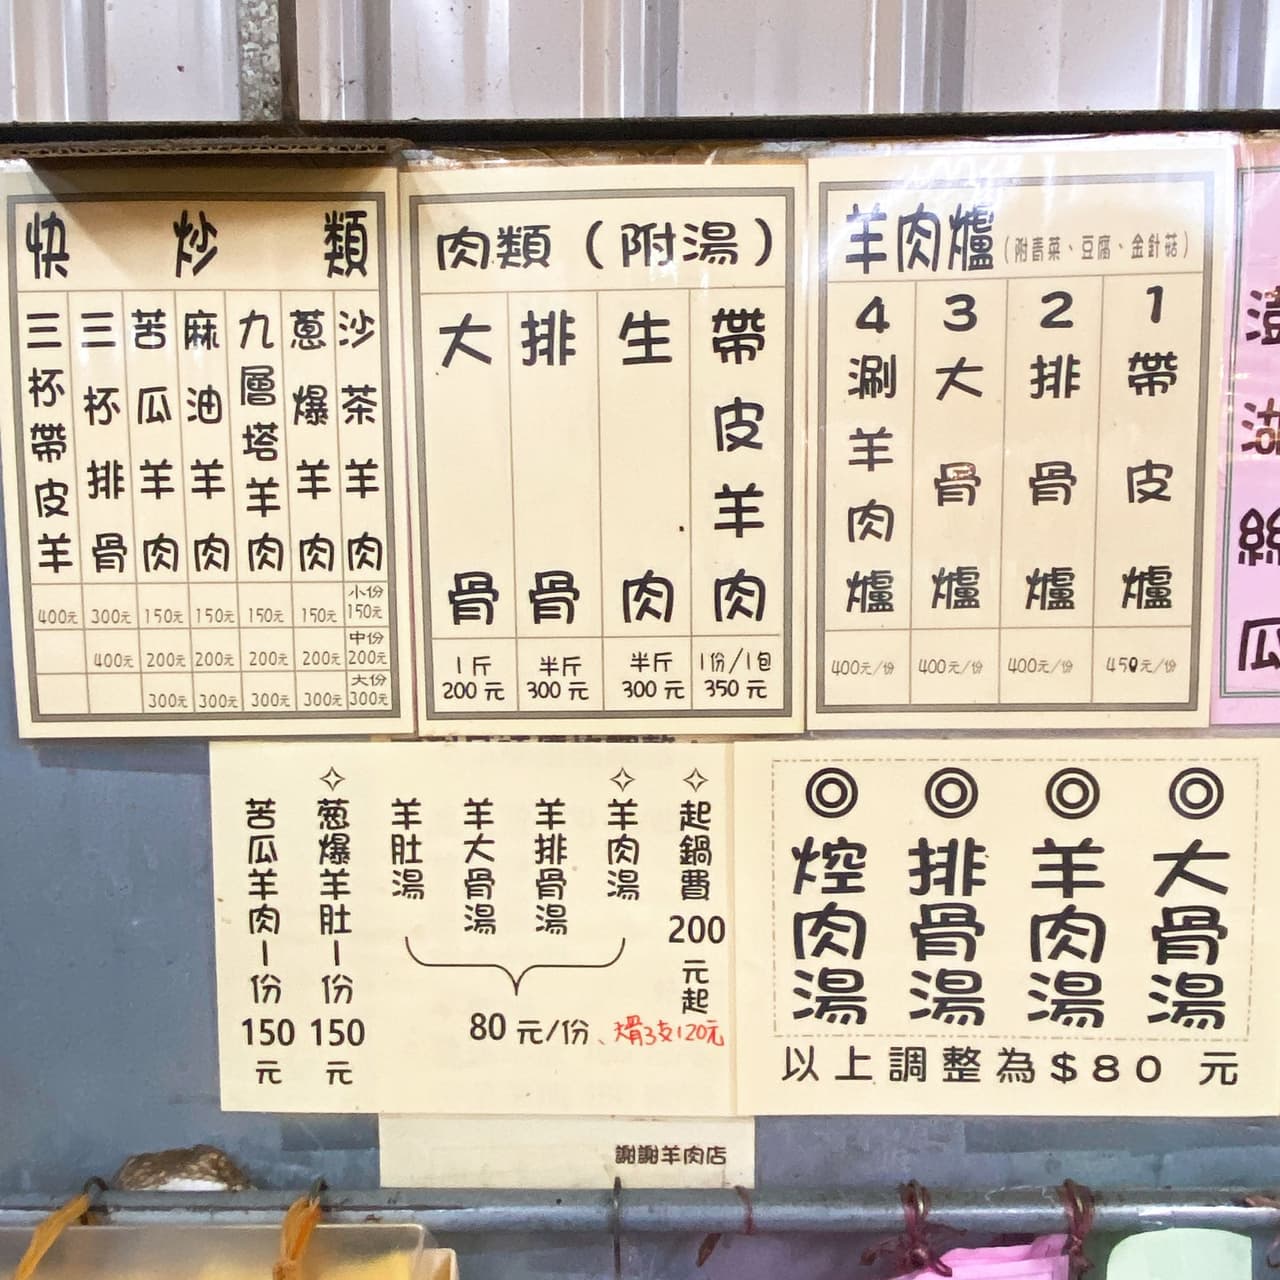 快炒類
沙茶羊肉 小份150元 中份200元 大份300元
蔥爆羊肉 150元 200元 300元
九層塔羊肉 150元 200元 300元
麻油羊肉 150元 200元 300元
苦瓜羊肉 150元 200元 300元
三杯排骨 300元 400元
三杯帶皮羊 400元
肉類（附湯）
帶皮羊肉 1份/1包 350元
生肉 半斤 300元
排骨 半斤 300元
大骨 1斤 200元
羊肉爐(附青菜、豆腐、金針菇)
1帶皮爐 450元/份
2排骨爐 400元/份
3大骨爐 400元/份
4涮羊肉爐 400元/份
澎湖絲瓜
✧起鍋費200元起
✧羊肉湯
羊排骨湯
羊大骨湯
羊肚湯
80元/份、大骨3支120元
✧蔥爆羊肚一份150元
苦瓜羊肉一份150元
◎大骨湯
◎羊肉湯
◎排骨湯
◎焢肉湯
以上調整為$80 元
謝謝羊肉店